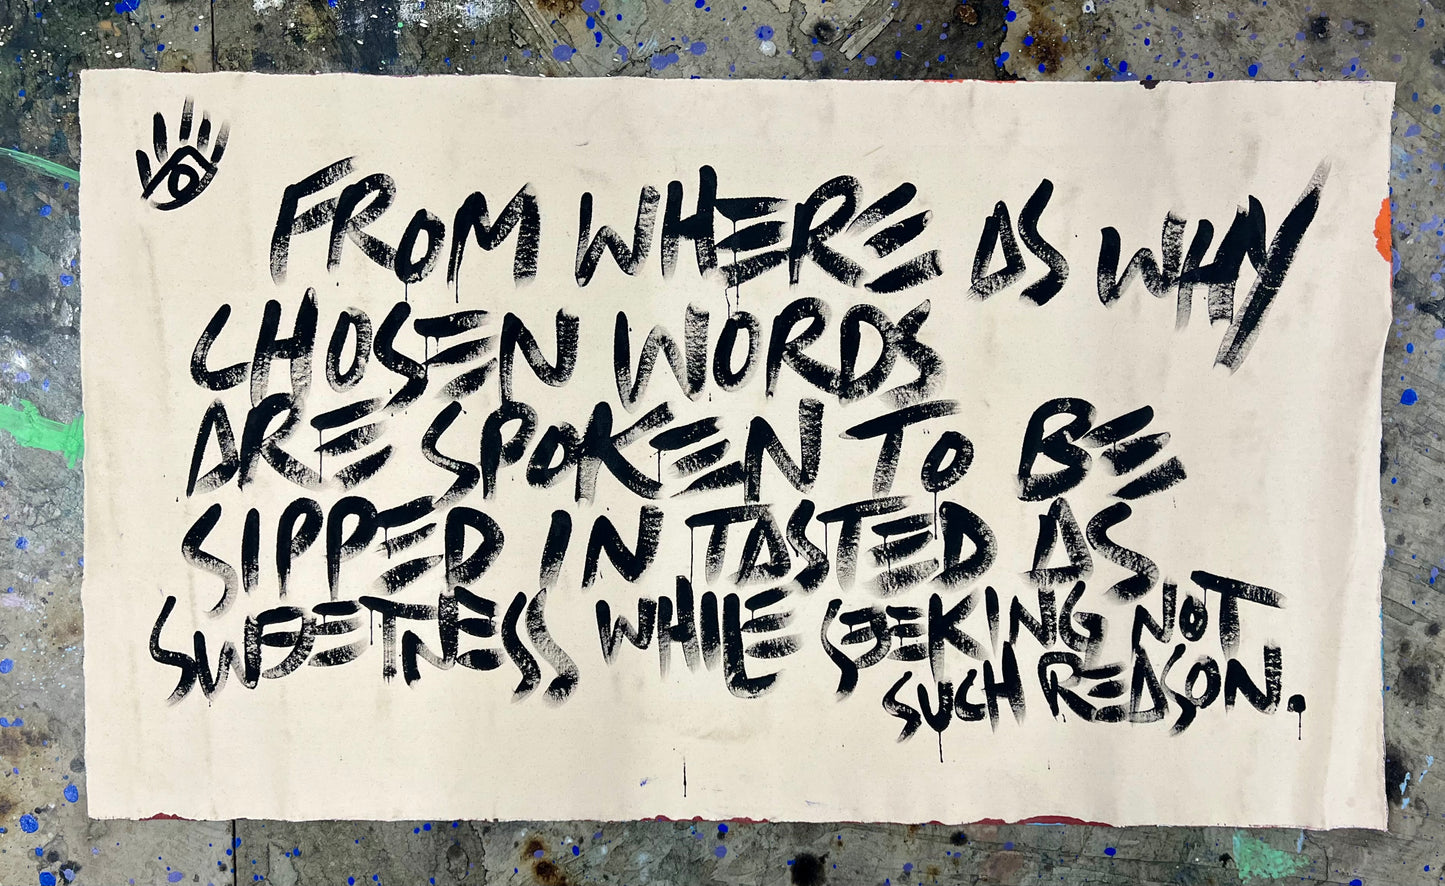 FROM WHERE AS WHY
CHOSEN WORDS
ARE SPOKEN TO BE
SIPPED IN TASTED AS
SWEETNESS WHILE SEEKING NOT
SUCH REASON.